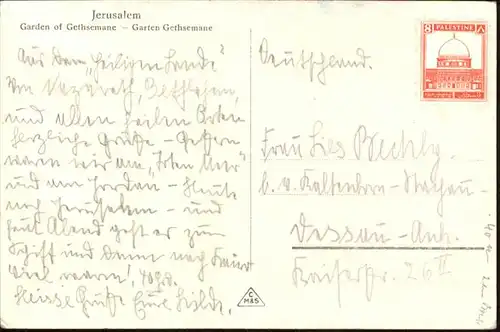 Jerusalem
Garden of Gethsemane – Garten Gethsemane
Aus dem „heiligen Lande“
von Nazareth, Bethlehem,
und allen heiligen Orten
herzliche Grüße – Gestern
waren wir am „Toten Meer“
und am Jordan – Heute
nach Jerusalem – und
heut Abend geht es zum
Schiff und dann nach
viel warm!
Heisse Grüße Eure Hilde
8 PALESTINE ٨
Deutschland.
Frau Lies
b. v. Kaltenborn-Stachau
Dessau-Anh.
Kaiserstr. 26 II
C
M&S